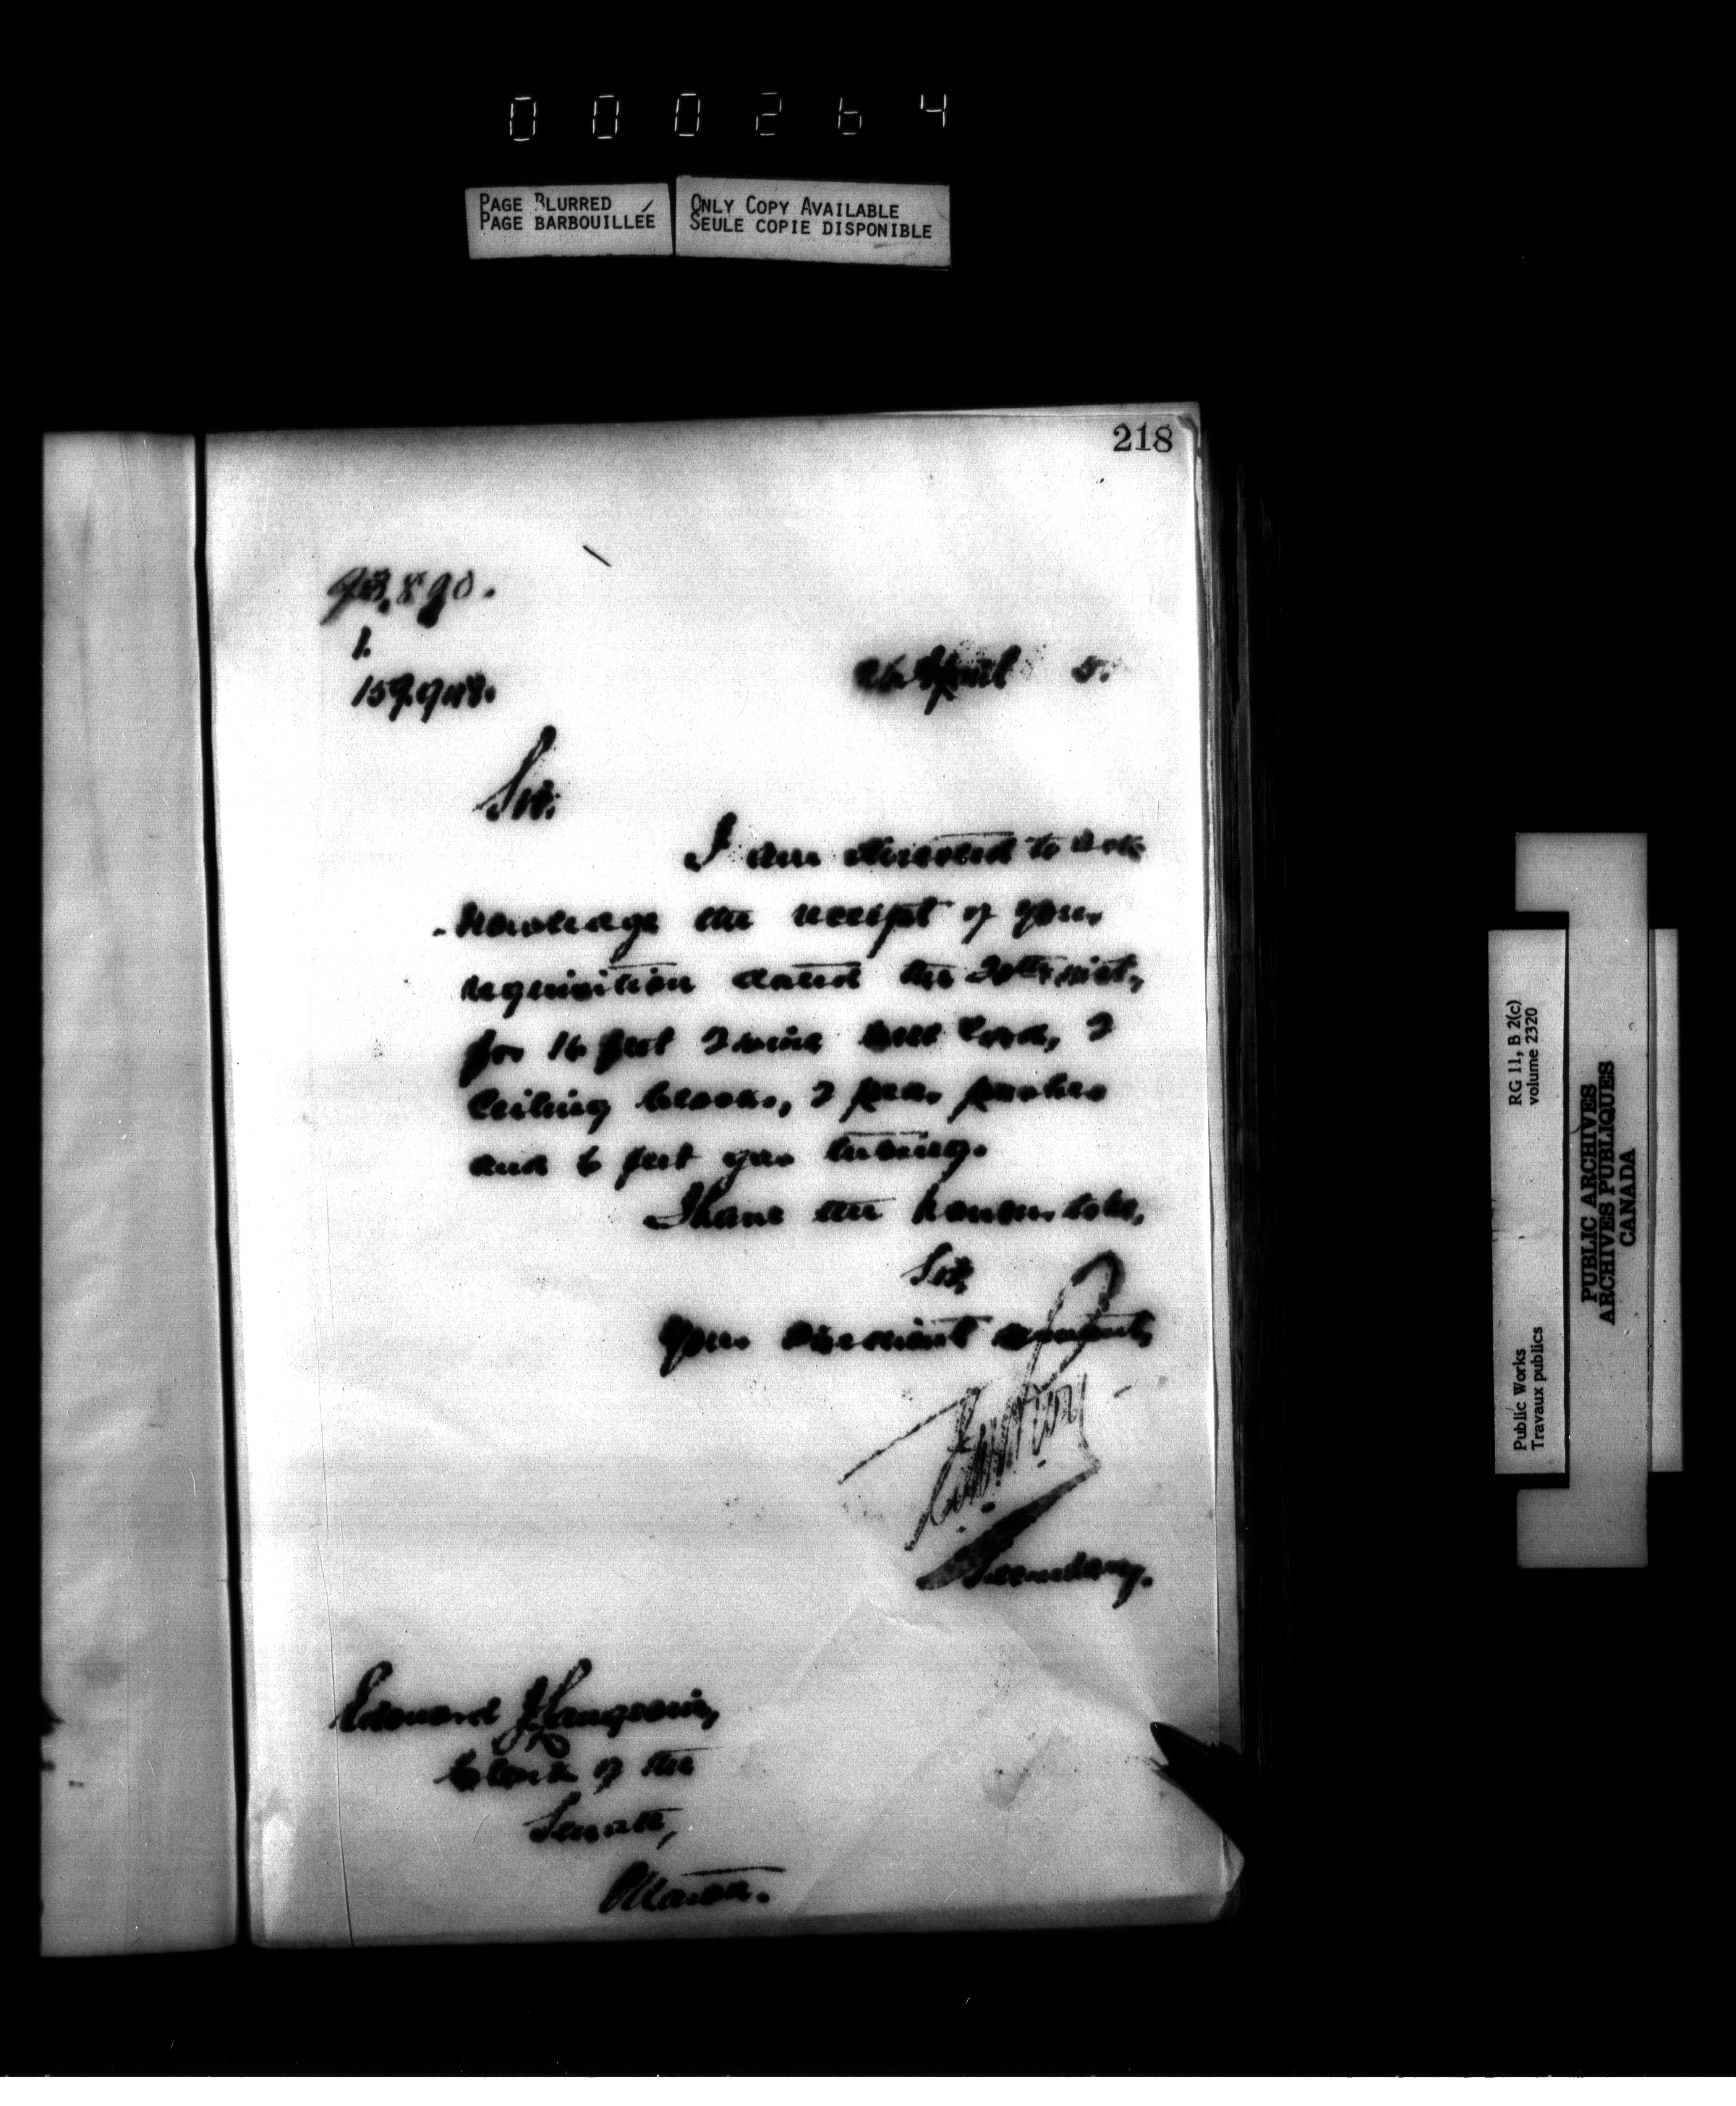 000264
PAGE BLURRED
PAGE BARBOUILLÉE
ONLY COPY AVAILABLE
SEULE COPIE DISPONIBLE
218
1.
26 April 5.
Sir,
I am directed to ack-
-nowledge the receipt of your
requisition dated the 20th inst,
for 16 feet 2 wire cord, 2
ceiling blocks, 2 pear pushes
and 6 feet gas tubing.
I have the honour to be,
Sir,
Your obedient servant,
Secretary.
Edouard J. Langevin,
Clerk of the
Senate,
Ottawa.
Public Works
Travaux publics
RG 11, B 2(c)
volume 2320
PUBLIC ARCHIVES
ARCHIVES PUBLIQUES
CANADA